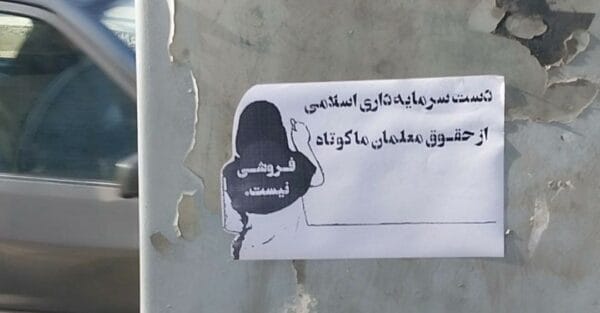 دست سرمایه‌داری اسلامی
از حقوق معلمان ما کوتاه
فروشی
نیست.